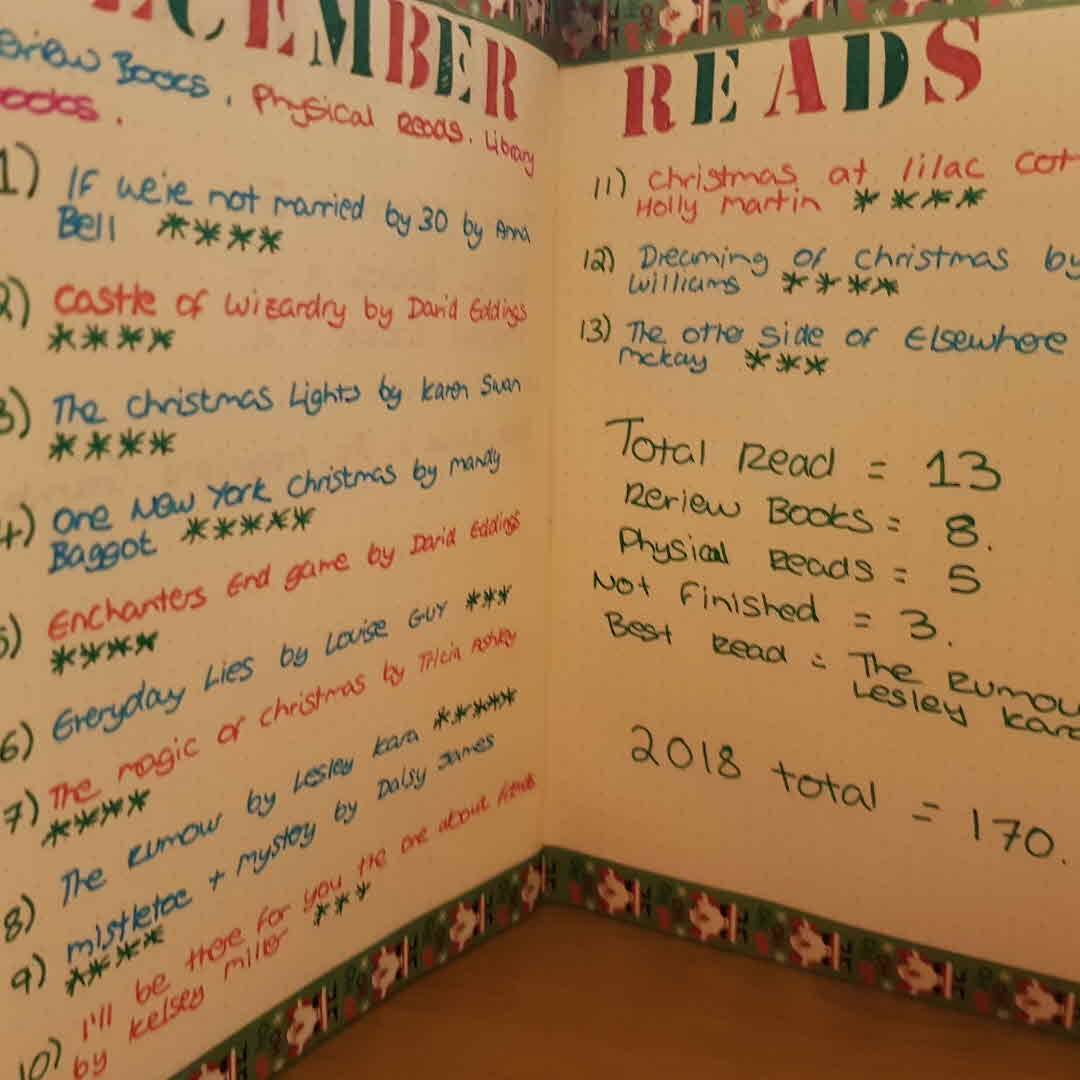 CEMBER
Books, Physical Reads. Library
Books.
1) If we're not married by 30 by Anna
Bell ****
2) Castle of Wizardry by David Eddings
****
3) The Christmas Lights by Karen Swan
****
4) One New York Christmas by mandy
Baggot *****
5) Enchanters End game by David Eddings
****
6) Everyday Lies by Louise Guy ***
7) The magic of christmas by Tricia Ashley
****
8) The Rumour by Lesley Kara *****
9) mistletoe + mystery by Daisy James
****
10) I'll be there for you the one about friends
by kelsey miller ***
READS
11) Christmas at lilac cot
Holly Martin ****
12) Dreaming of christmas by
Williams ****
13) The other side of Elsewhere
Mckay ***
Total Read = 13
Review Books = 8.
Physical Reads = 5
Not Finished = 3.
Best Read = The Rumou
Lesley Kara
2018 total = 170.